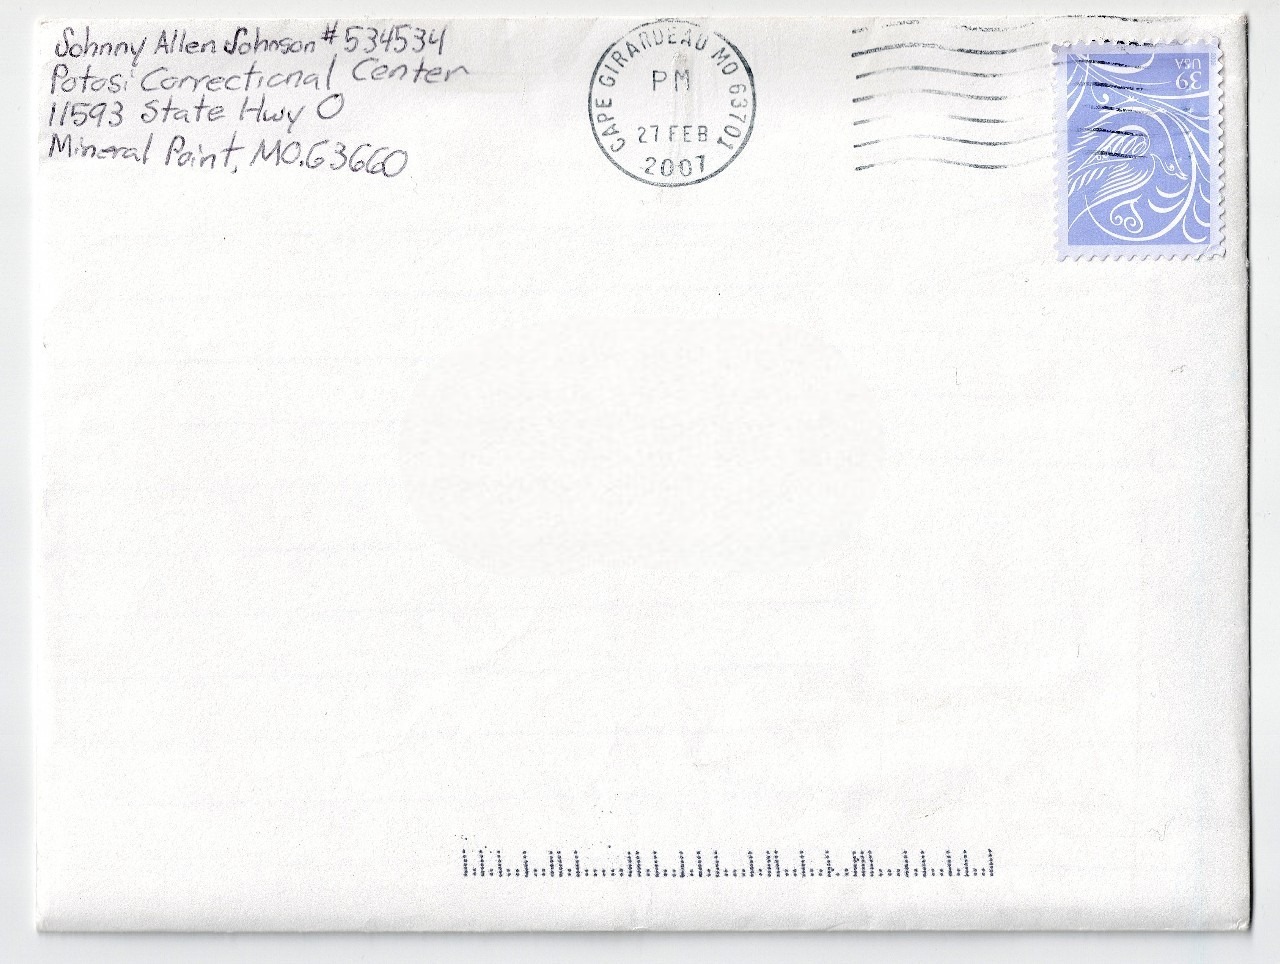 Johnny Allen Johnson #534534
Potosi Correctional Center
11593 State Hwy O
Mineral Point, MO. 63660
CAPE GIRARDEAU MO 63701
PM
27 FEB
2007
39
USA